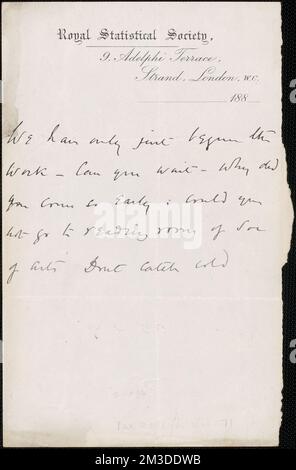 Royal Statistical Society,
9, Adelphi Terrace,
Strand, London, W.C.
188
We have only just begun the
work – Can you wait – Why did
you come so early; could you
not go to reading room of Soc
of arts Dont catch cold
alamy
Image ID: 2M3DDWB
www.alamy.com